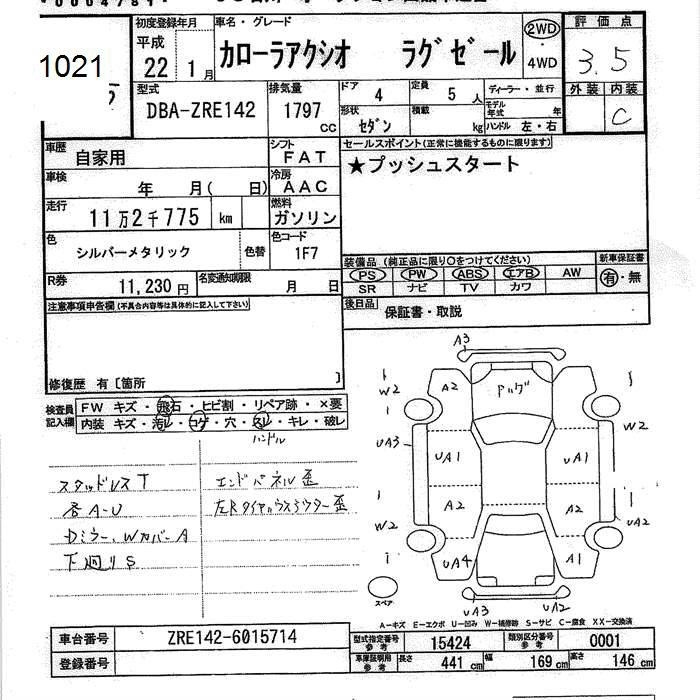 1021
初度登録年月
平成
22 1月
車名・グレード
カローラアクシオ ラグゼール
2WD
4WD
評価点
3.5
外装 内装
C
型式
DBA-ZRE142
排気量
1797 cc
ドア 4
定員 5人
形状 セダン
積載 kg
ディーラー・並行
モデル年式 年
ハンドル 左・右
車歴
自家用
シフト
FAT
セールスポイント(正常に機能するものに限ります)
★プッシュスタート
車検
年 月( 日)
冷房
AAC
走行
11万2千775 km
燃料
ガソリン
色
シルバーメタリック
色替
色コード
1F7
R券
11,230円
名変通知期限
月 日
装備品(純正品に限り○をつけてください)
PS PW ABS エアB AW
SR ナビ TV カワ
新車保証書
有・無
後日品
保証書・取説
注意事項申告欄(不具合内容等は具体的に記入して下さい)
修復歴 有〔箇所 〕
検査員記入欄
FW キズ・飛石・ヒビ割・リペア跡・×要
内装 キズ・汚レ・コゲ・穴・スレ・キレ・破レ
ハンドル
スタッドレスT
各A-U
Dミラー、WカバーA
下廻りS
エンドパネル歪
A3
A2
W2
W2
UA3
UA1
UA1
A2
A2
W2
UA2
UA4
A1
UA3
UA2
スペア
A-キズ E-エクボ U-凹み W-補修跡 S-サビ C-腐食 XX-交換済
車台番号
ZRE142-6015714
登録番号
型式指定番号 参考
15424
類別区分番号 参考
0001
車庫証明用 参考
長さ 441 cm
幅 169 cm
高さ 146 cm